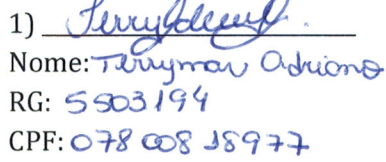 1)
Nome: Terrymar Adriano
RG: 5503194
CPF: 078 008 189 77